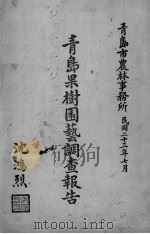 青島市農林事務所 民國二十二年七月
青島果樹園藝調查報告
沈鴻烈